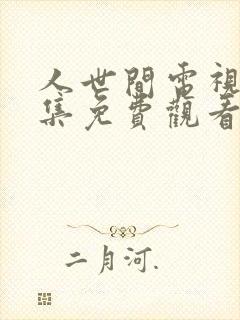 人世間電視
集免費觀看
二月河.